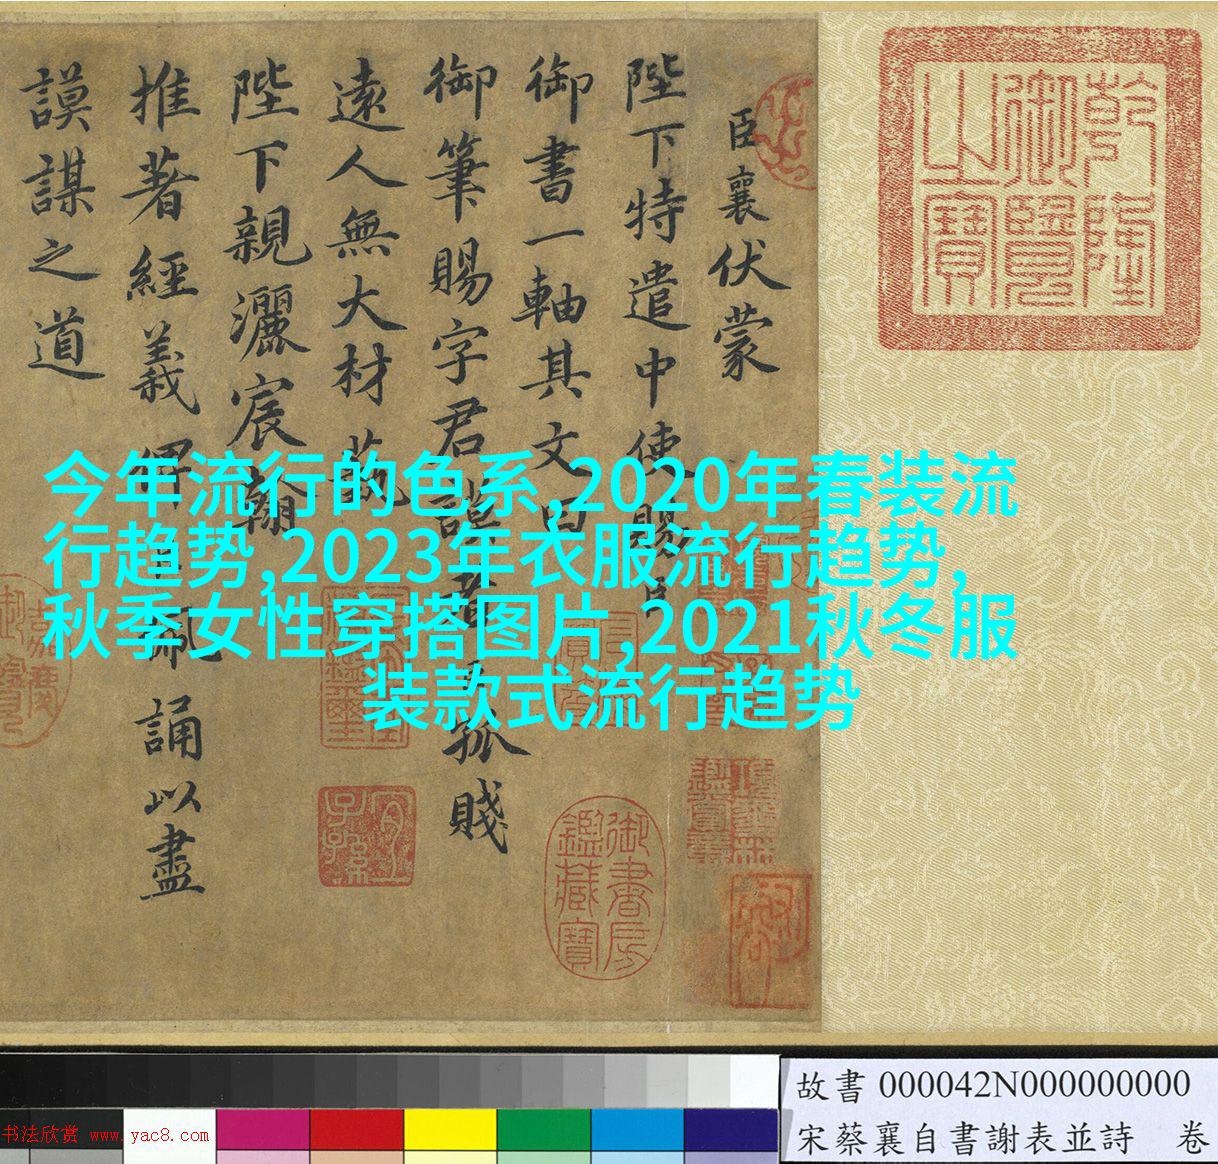 臣襄伏蒙
陛下特遣中使賜臣
御書一軸其文曰
御筆賜字君謨者
孤賤
遠人無大材藝
陛下親灑宸翰
推著經義俾
佩誦以盡
謨謀之道
乾隆
御覽
之寶
御書房
鑑藏寶
宜
子孫
今年流行的色系,2020年春装流
行趋势,2023年衣服流行趋势,
秋季女性穿搭图片,2021秋冬服
装款式流行趋势
故書 000042N000000000
宋蔡襄自書謝表並詩 卷
书法欣赏 www.yac8.com